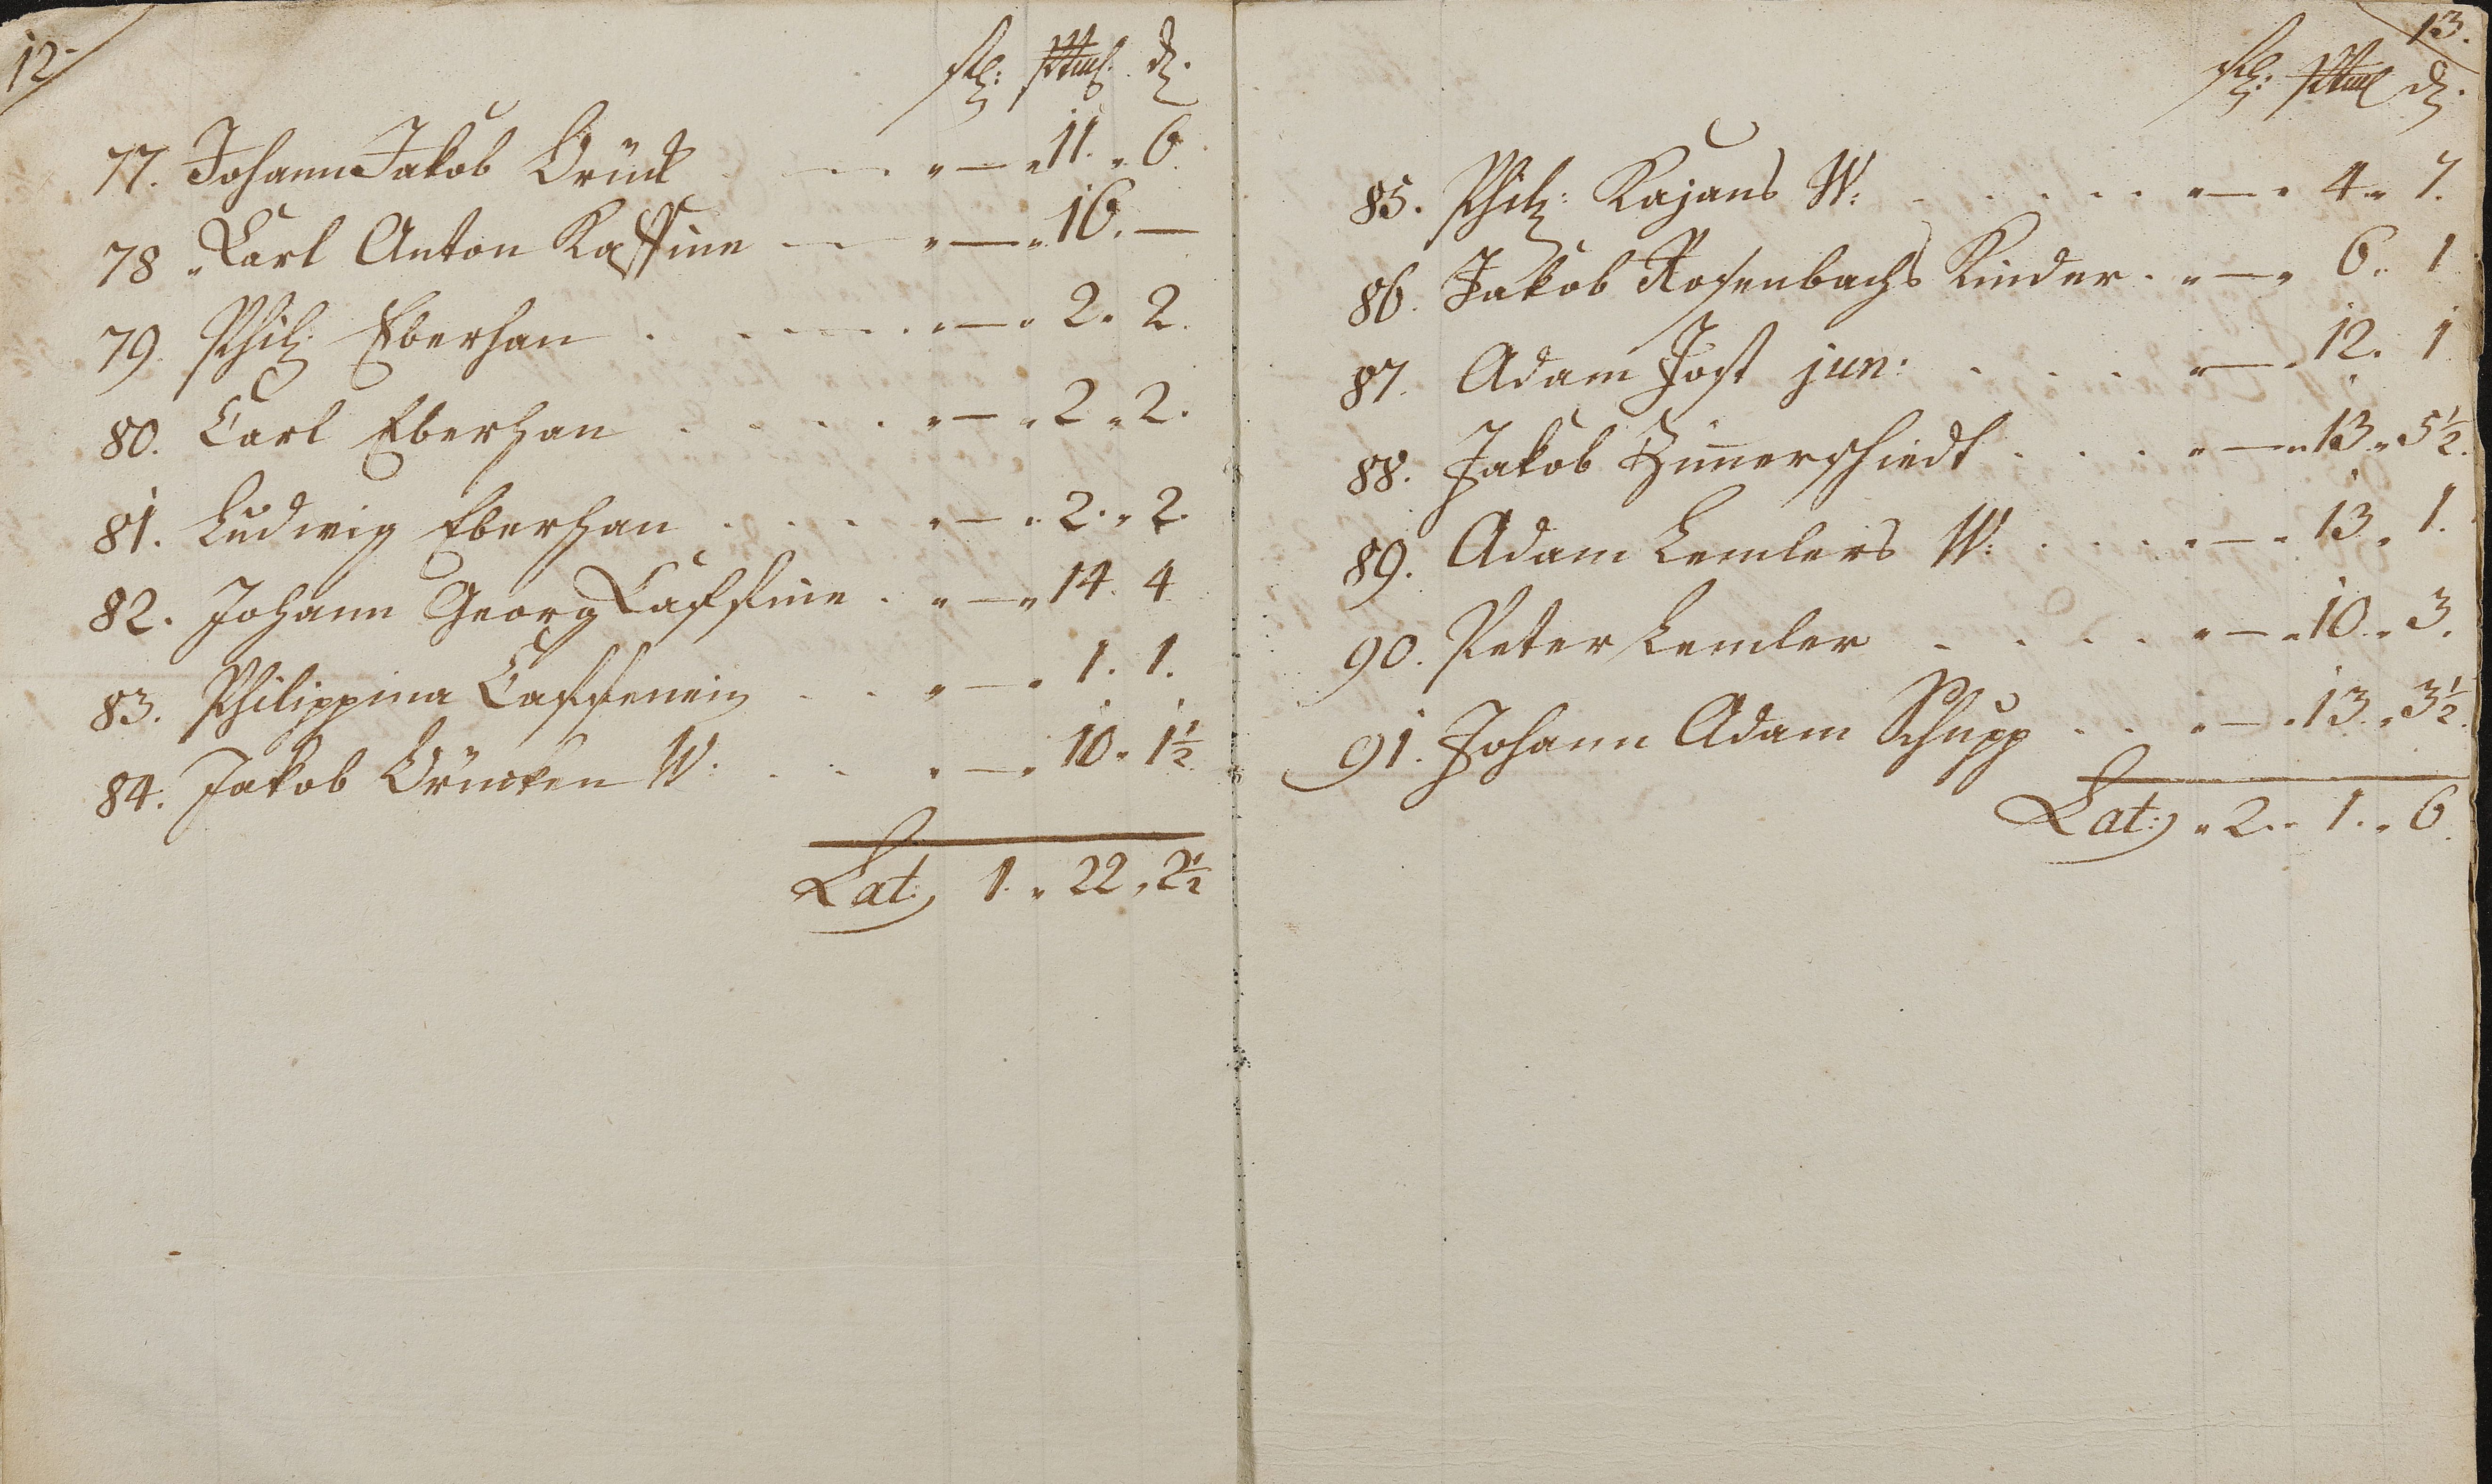 12.
77. Johann Jakob Brück . — „ — „ 11. „ 6.
78 „ Carl Anton Kassine — „ — „ 16. —
79. Phil: Eberhan . . — . „ — „ 2 „ 2.
80. Carl Eberhan . . . . „ — „ 2 „ 2.
81. Ludwig Eberhan . . . „ — „ 2. „ 2.
82. Johann Georg Cassine . „ — „ 14. 4
83. Philippina Cassenein . . „ — „ 1. 1.
84. Jakob Brücken W: . . „ — „ 10 „ 1½
Lat: 1. „ 22 „ 2½
13.
85. Phil: Kajans W: . . . . . „ — „ 4 „ 7.
86. Jakob Rosenbachs Kinder . „ — „ 6 „ 1
87. Adam Jost jun: . . . „ — „ 12. 1
88. Jakob Zim̄erschiedt . . . „ — „ 13 „ 5½.
89. Adam Lemlers W: . . . „ — „ 13 „ 1.
90. Peter Lemler . . . . „ — „ 10 „ 3.
91. Johann Adam Schupp . . „ — „ 13 „ 3½.
Lat: „ 2 „ 1. „ 6.